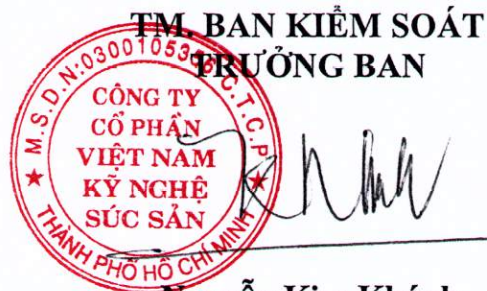 TM. BAN KIỂM SOÁT
TRƯỞNG BAN
M.S.D.N:0300105356-C.T.C.P
CÔNG TY
CỔ PHẦN
VIỆT NAM
KỸ NGHỆ
SÚC SẢN
THÀNH PHỐ HỒ CHÍ MINH
Nguyễn Kim Khánh